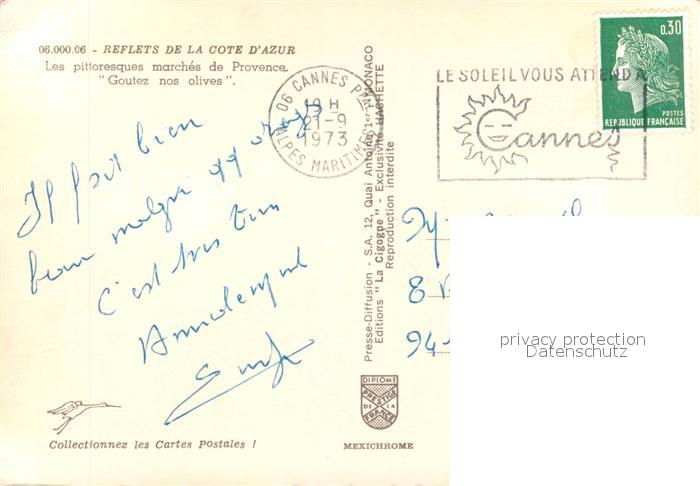 06.000.06 - REFLETS DE LA COTE D'AZUR
Les pittoresques marchés de Provence.
"Goutez nos olives".
06 CANNES PPAL
19 H
21-9
1973
ALPES MARITIMES
LE SOLEIL VOUS ATTEND A
Cannes
0,30
POSTES
REPUBLIQUE FRANÇAISE
Il fait bien
beau malgré qq orages
C'est très bien
Amicalement
Presse-Diffusion - S.A. 12, Quai Antoine 1er - MONACO
Editions "La Cigogne" - Exclusivité HACHETTE
Reproduction interdite
8
94
privacy protection
Datenschutz
DIPLOME
PRESTIGE
DE LA
FRANCE
Collectionnez les Cartes Postales !
MEXICHROME